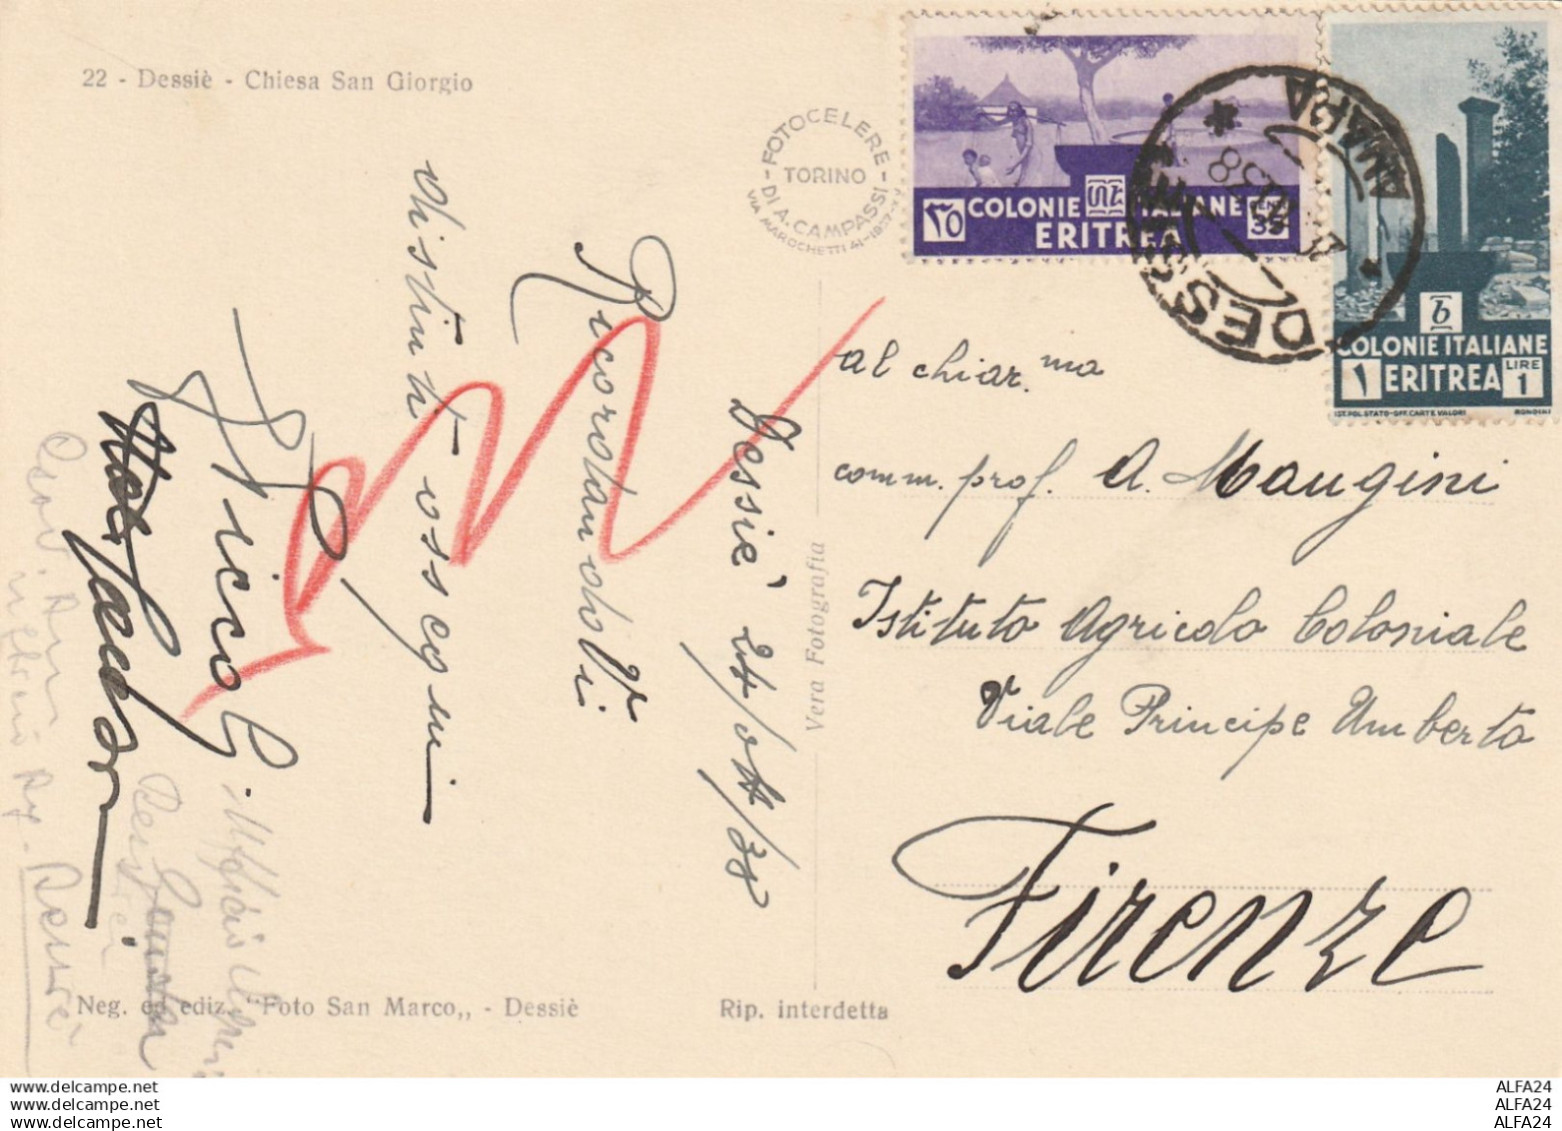 22 - Dessiè - Chiesa San Giorgio
FOTOCELERE
TORINO
DI A. CAMPASSI
VIA MAROCHETTI 41-1937-
COLONIE ITALIANE
ERITREA
CENT. 35
COLONIE ITALIANE
ERITREA
LIRE 1
IST. POL. STATO-OFF. CARTE VALORI
RONDINI
DESSIE
AMARA
38
Dessiè 24/04/38
Ricordandovi
distinti ossequi
al chiar.ma
comm. prof. A. Maugini
Istituto Agricolo Coloniale
Viale Principe Umberto
Firenze
Vera Fotografia
Neg. ed ediz. "Foto San Marco„ - Dessiè
Rip. interdetta
www.delcampe.net
www.delcampe.net
www.delcampe.net
ALFA24
ALFA24
ALFA24